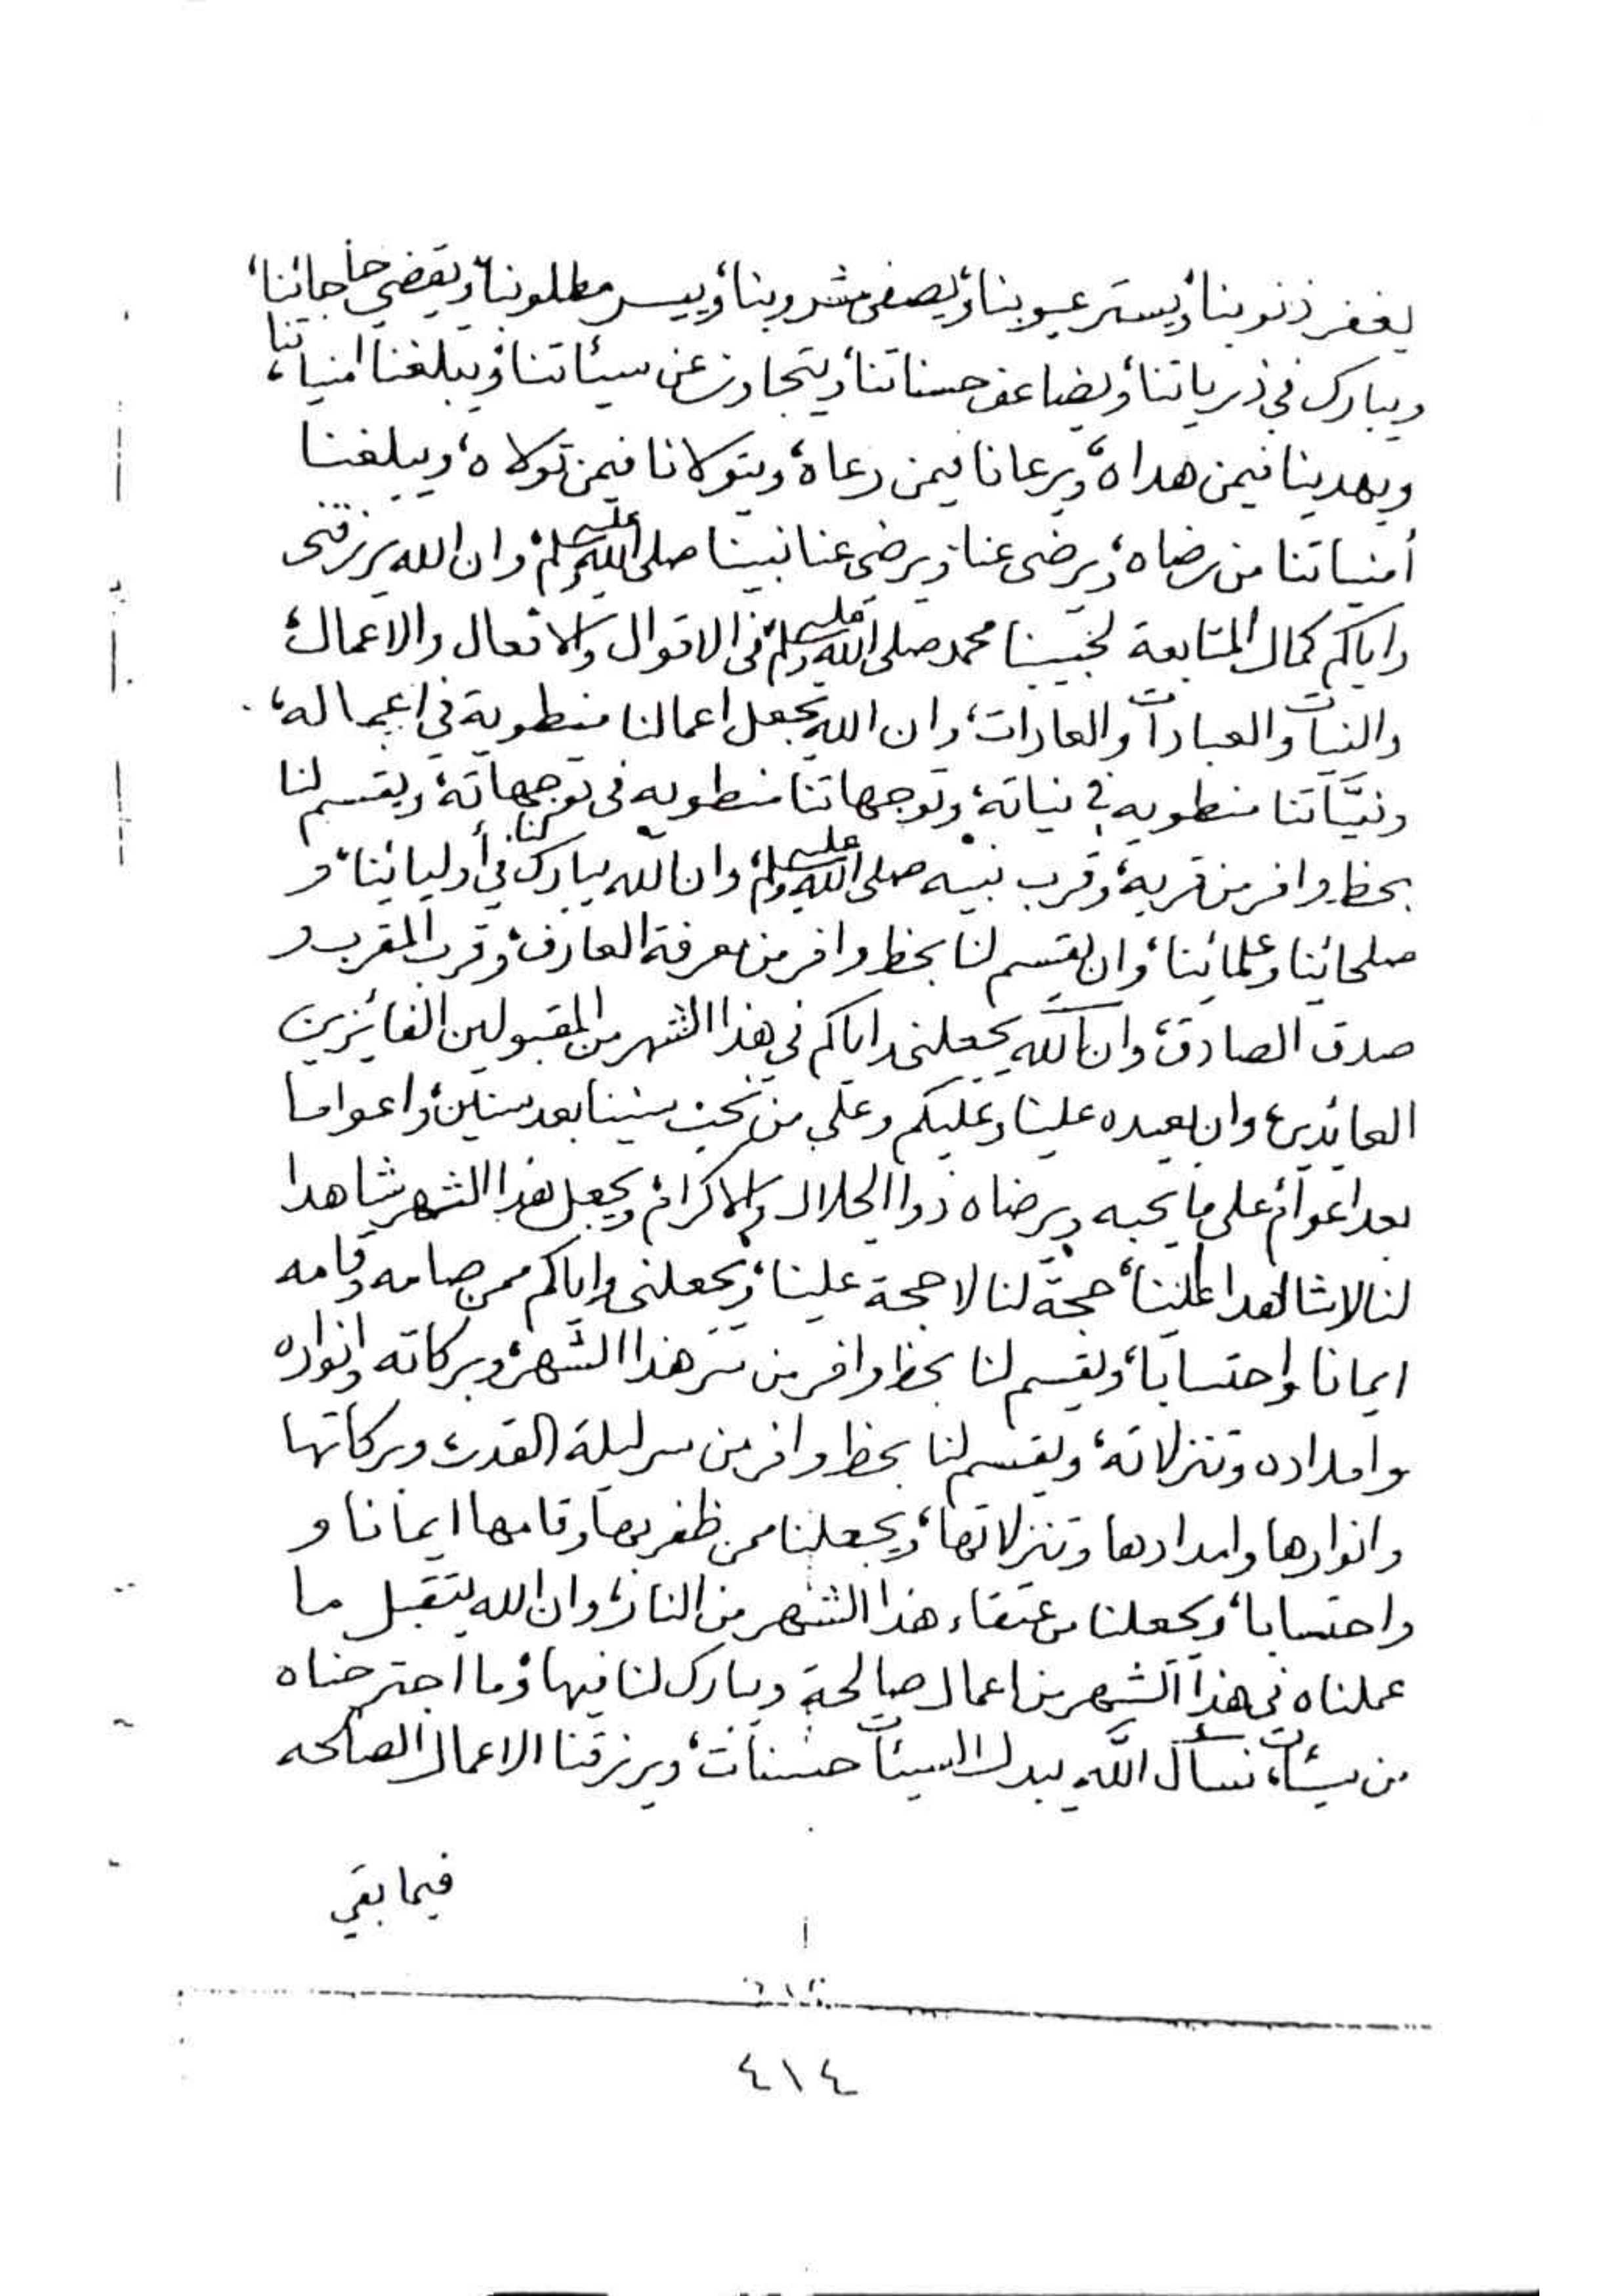 يغفر ذنوبنا، ويستر عيوبنا، ويصفى مشروبنا، وييسر مطلوبنا، ويقضي حاجاتنا،
ويبارك في ذرياتنا، ويضاعف حسناتنا، ويتجاوز عن سيئاتنا، ويبلغنا امنياتنا،
ويهدينا فيمن هداه، ويرعانا فيمن رعاه، ويتولانا فيمن تولاه، ويبلغنا
أمنياتنا من رضاه، ويرضى عنا ويرضى عنا نبينا صلى الله عليه وسلم، وان الله يرزقنى
واياكم كمال المتابعة لحبيبنا محمد صلى الله عليه وسلم فى الاقوال والافعال والاعمال،
والنيات والعبادات والعادات، وان الله يجعل اعمالنا منطوية في اعماله،
ونيَّاتنا منطويه في نياته، وتوجهاتنا منطويه فى توجهاته، ويقسم لنا
بحظ وافر من قربه، وقرب نبيه صلى الله عليه وسلم، وان الله يبارك لنا في أوليائنا، و
صلحائنا وعلمائنا، وان يقسم لنا بحظ وافر من معرفة العارف، وقرب المقرب و
صدق الصادق، وان الله يجعلنى واياكم في هذا الشهر من المقبولين الفائزين
العائدين، وان يعيده علينا وعليكم وعلى من نحب سنينا بعد سنين، واعواما
بعد اعوام على ما يحبه ويرضاه ذوا الجلال والاكرام، ويجعل هذا الشهر شاهدا
لنا لا شاهدا علينا، حجة لنا لا حجة علينا، ويجعلنى واياكم ممن صامه وقامه
ايمانا واحتسابا، ويقسم لنا بحظ وافر من سر هذا الشهر، وبركاته وانواره
وامداده وتنزلاته، ويقسم لنا بحظ وافر من سر ليلة القدر، وبركاتها
وانوارها وامدادها وتنزلاتها، ويجعلنا ممن ظفر بها وقامها ايمانا و
واحتسابا، ويجعلنا من عتقاء هذا الشهر من النار، وان الله يتقبل ما
عملناه في هذا الشهر من اعمال صالحة ويبارك لنا فيها، وما اجترحناه
من سيئات، نسأل الله يبدل السيئات حسنات، ويرزقنا الاعمال الصالحه
فيما بقي
٤١٤